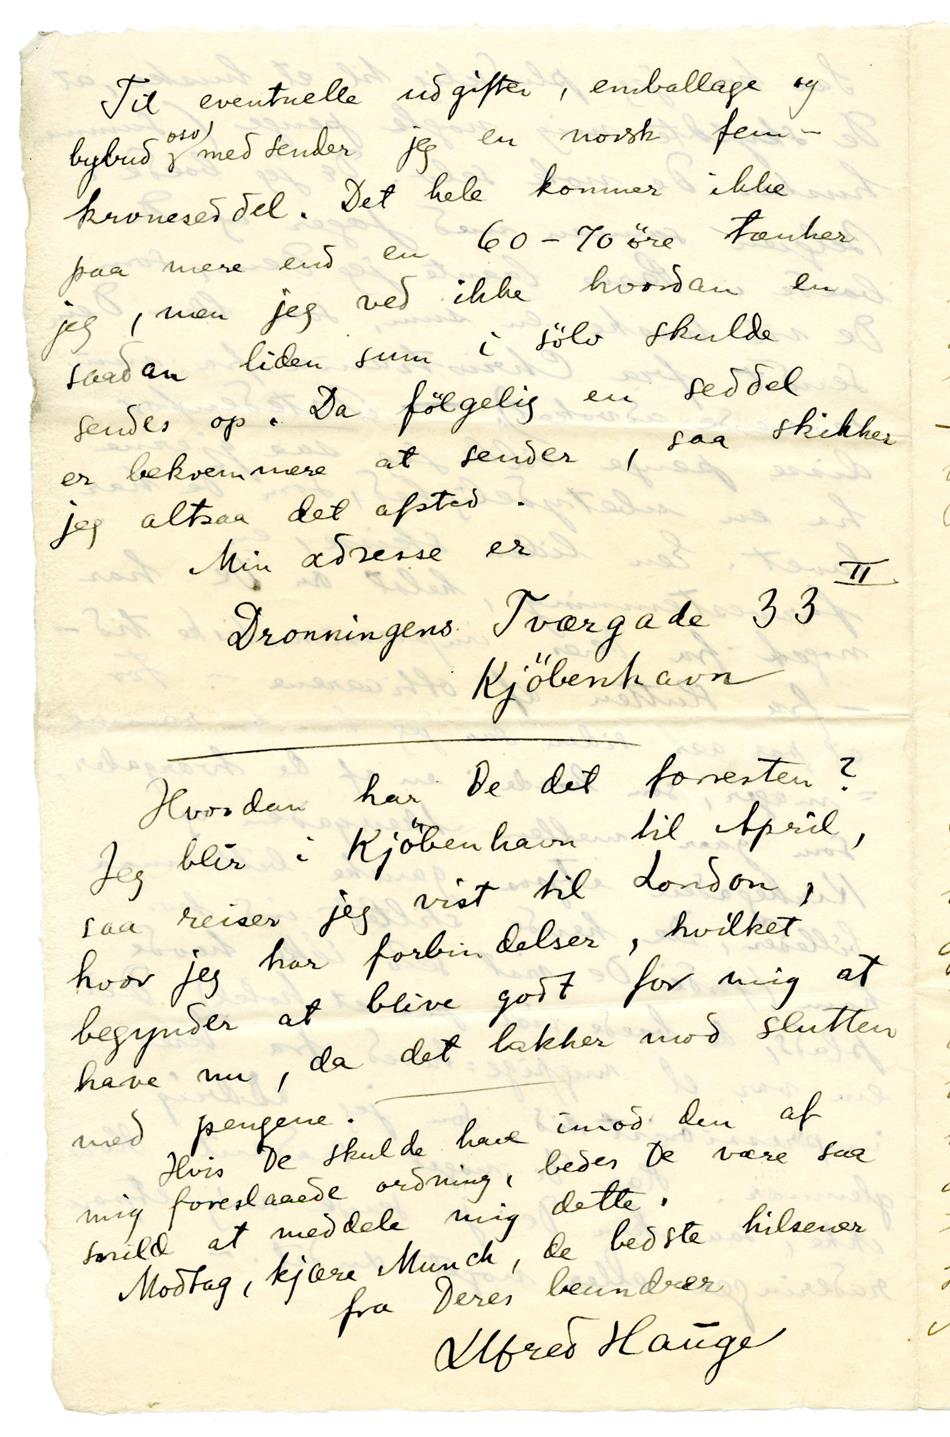 Til eventuelle udgifter, emballage og
bybud osv, medsender jeg en norsk fem-
kroneseddel. Det hele kommer ikke
paa mere end en 60-70 öre tænker
jeg, men jeg ved ikke hvordan en
saadan liden sum i sölv skulde
sendes op. Da fölgelig en seddel
er bekvemmere at sender, saa skikker
jeg altsaa det afsted.
Min adresse er
Dronningens Tværgade 33 II
Kjöbenhavn
Hvordan har De det forresten?
Jeg blir i Kjöbenhavn til April,
saa reiser jeg vist til London,
hvor jeg har forbindelser, hvilket
begynder at blive godt for mig at
have nu, da det lakker mod slutten
med pengene.
Hvis De skulde have imod den af
mig foreslaaede ordning, bedes De være saa
snild at meddele mig dette.
Modtag, kjære Munch, de bedste hilsener
fra Deres beundrer
Alfred Hauge